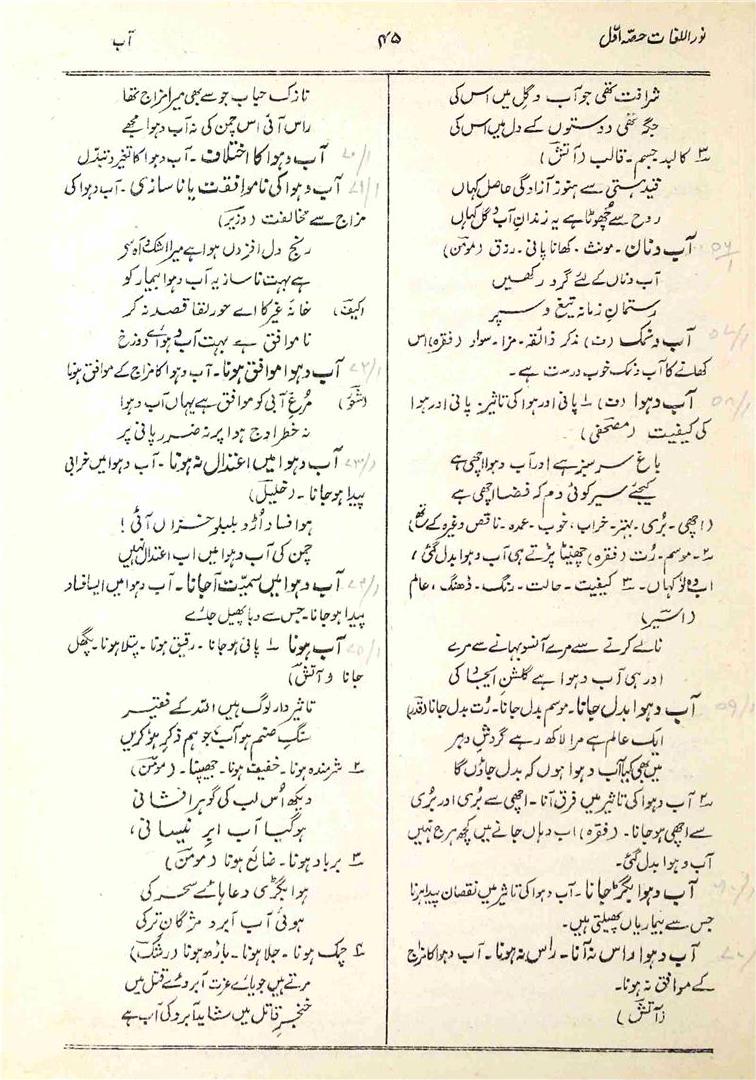 نور اللغات حصہ اوّل
۴۵
آب
شرافت تھی جو آب و گِل میں اس کی
جگہ تھی دوستوں کے دل میں اس کی
۳ کالبد جسم۔ قالب (آتش)
قیدِ ہستی سے ہنوز آزادگی حاصل کہاں
روح سے چُھوٹا ہے یہ زندانِ آب و گل کہاں
آب و نان۔ مونث۔ کھانا پانی۔ رزق (مومن)
آب و ناں کے لئے گرو رکھیں
رستمانِ زمانہ تیغ و سپر
آب و نمک (ف) مذکر ذائقہ۔ مزا۔ سواد (فقرہ) اس
کھانے کا آب و نمک خوب درست ہے۔
آب و ہوا (ف) ۱ پانی اور ہوا کی تاثیر۔ پانی اور ہوا
کی کیفیت (مصحفی)
باغ سرسبز ہے اور آب و ہوا اچھی ہے
کیجئے سیر کوئی دم کہ فضا اچھی ہے
(اچھی۔ بُری۔ بہتر۔ خراب، خوب۔ عمدہ۔ ناقص وغیرہ کے ساتھ)
۲۔ موسم۔ رُت (فقرہ) چھینٹا پڑتے ہی آب و ہوا بدل گئی،
اب وہ لُو کہاں۔ ۳ کیفیت۔ حالت۔ رنگ۔ ڈھنگ، عالم
(اسیر)
نالے کرنے سے مرے آنسو بہانے سے مرے
اور ہی آب و ہوا ہے گلشنِ ایجاد کی
آب و ہوا بدل جانا۔ موسم بدل جانا۔ رُت بدل جانا (قدر)
ایک عالم ہے مرا لاکھ رہے گردشِ دہر
میں بھی کیا آب و ہوا ہوں کہ بدل جاؤں گا
۲ آب و ہوا کی تاثیر میں فرق آنا۔ اچھی سے بُری اور بُری
سے اچھی ہو جانا۔ (فقرہ) اب وہاں جانے میں کچھ ہرج نہیں
آب و ہوا بدل گئی۔
آب و ہوا بگڑ جانا۔ آب و ہوا کی تاثیر میں نقصان پیدا ہونا
جس سے بیماریاں پھیلتی ہیں۔
آب و ہوا راس نہ آنا۔ راس نہ ہونا۔ آب و ہوا کا مزاج
کے موافق نہ ہونا۔
(آتش)
نازک حباب جو سے بھی میرا مزاج تھا
راس آئی اس چمن کی نہ آب و ہوا مجھے
آب و ہوا کا اختلاف۔ آب و ہوا کا تغیر و تبدّل
آب و ہوا کی ناموافقت یا ناسازی۔ آب و ہوا کی
مزاج سے مخالفت (وزیر)
رنج دل افزوں ہوا ہے میرا اشک و آہ سے
ہے بہت ناساز یہ آب و ہوا بیمار کو
(کیف) خانۂ غیر کا اے حور لقا قصد نہ کر
ناموافق ہے بہت آب و ہوائے دوزخ
آب و ہوا موافق ہونا۔ آب و ہوا کا مزاج کے موافق ہونا
مرغِ آبی کو موافق ہے یہاں آب و ہوا
نہ خطر اوج ہوا پر نہ ضرر پانی پر
آب و ہوا میں اعتدال نہ ہونا۔ آب و ہوا میں خرابی
پیدا ہو جانا۔ (خلیل)
ہوا فساد اُڑو بلبلو خزاں آئی!
چمن کی آب و ہوا میں اب اعتدال نہیں
آب و ہوا میں سمیّت آ جانا۔ آب و ہوا میں ایسا فساد
پیدا ہو جانا۔ جس سے وبا پھیل جائے
آب ہونا ۱ پانی ہو جانا۔ رقیق ہونا۔ پتلا ہونا۔ پگھل
جانا (آتش)
تاثیر دار لوگ ہیں اللہ کے فقیر
سنگِ صنم ہو آب جو ہم ذکرِ ہُو کریں
۲ شرمندہ ہونا۔ خفیف ہونا۔ جھیپنا۔ (مومن)
دیکھ اُس لب کی گوہر افشانی
ہو گیا آب ابرِ نیسانی،
۳ برباد ہونا۔ ضائع ہونا (مومن)
ہوا بگڑی دعا ہائے سحر کی
ہوئی آب آبرو مژگانِ تر کی
۴ چمک ہونا۔ جلا ہونا۔ باڑھ ہونا (رشک)
مرتے ہیں جویائے عزت آبروئے قتل میں
خنجرِ قاتل میں شاید آبرو کی آب ہے